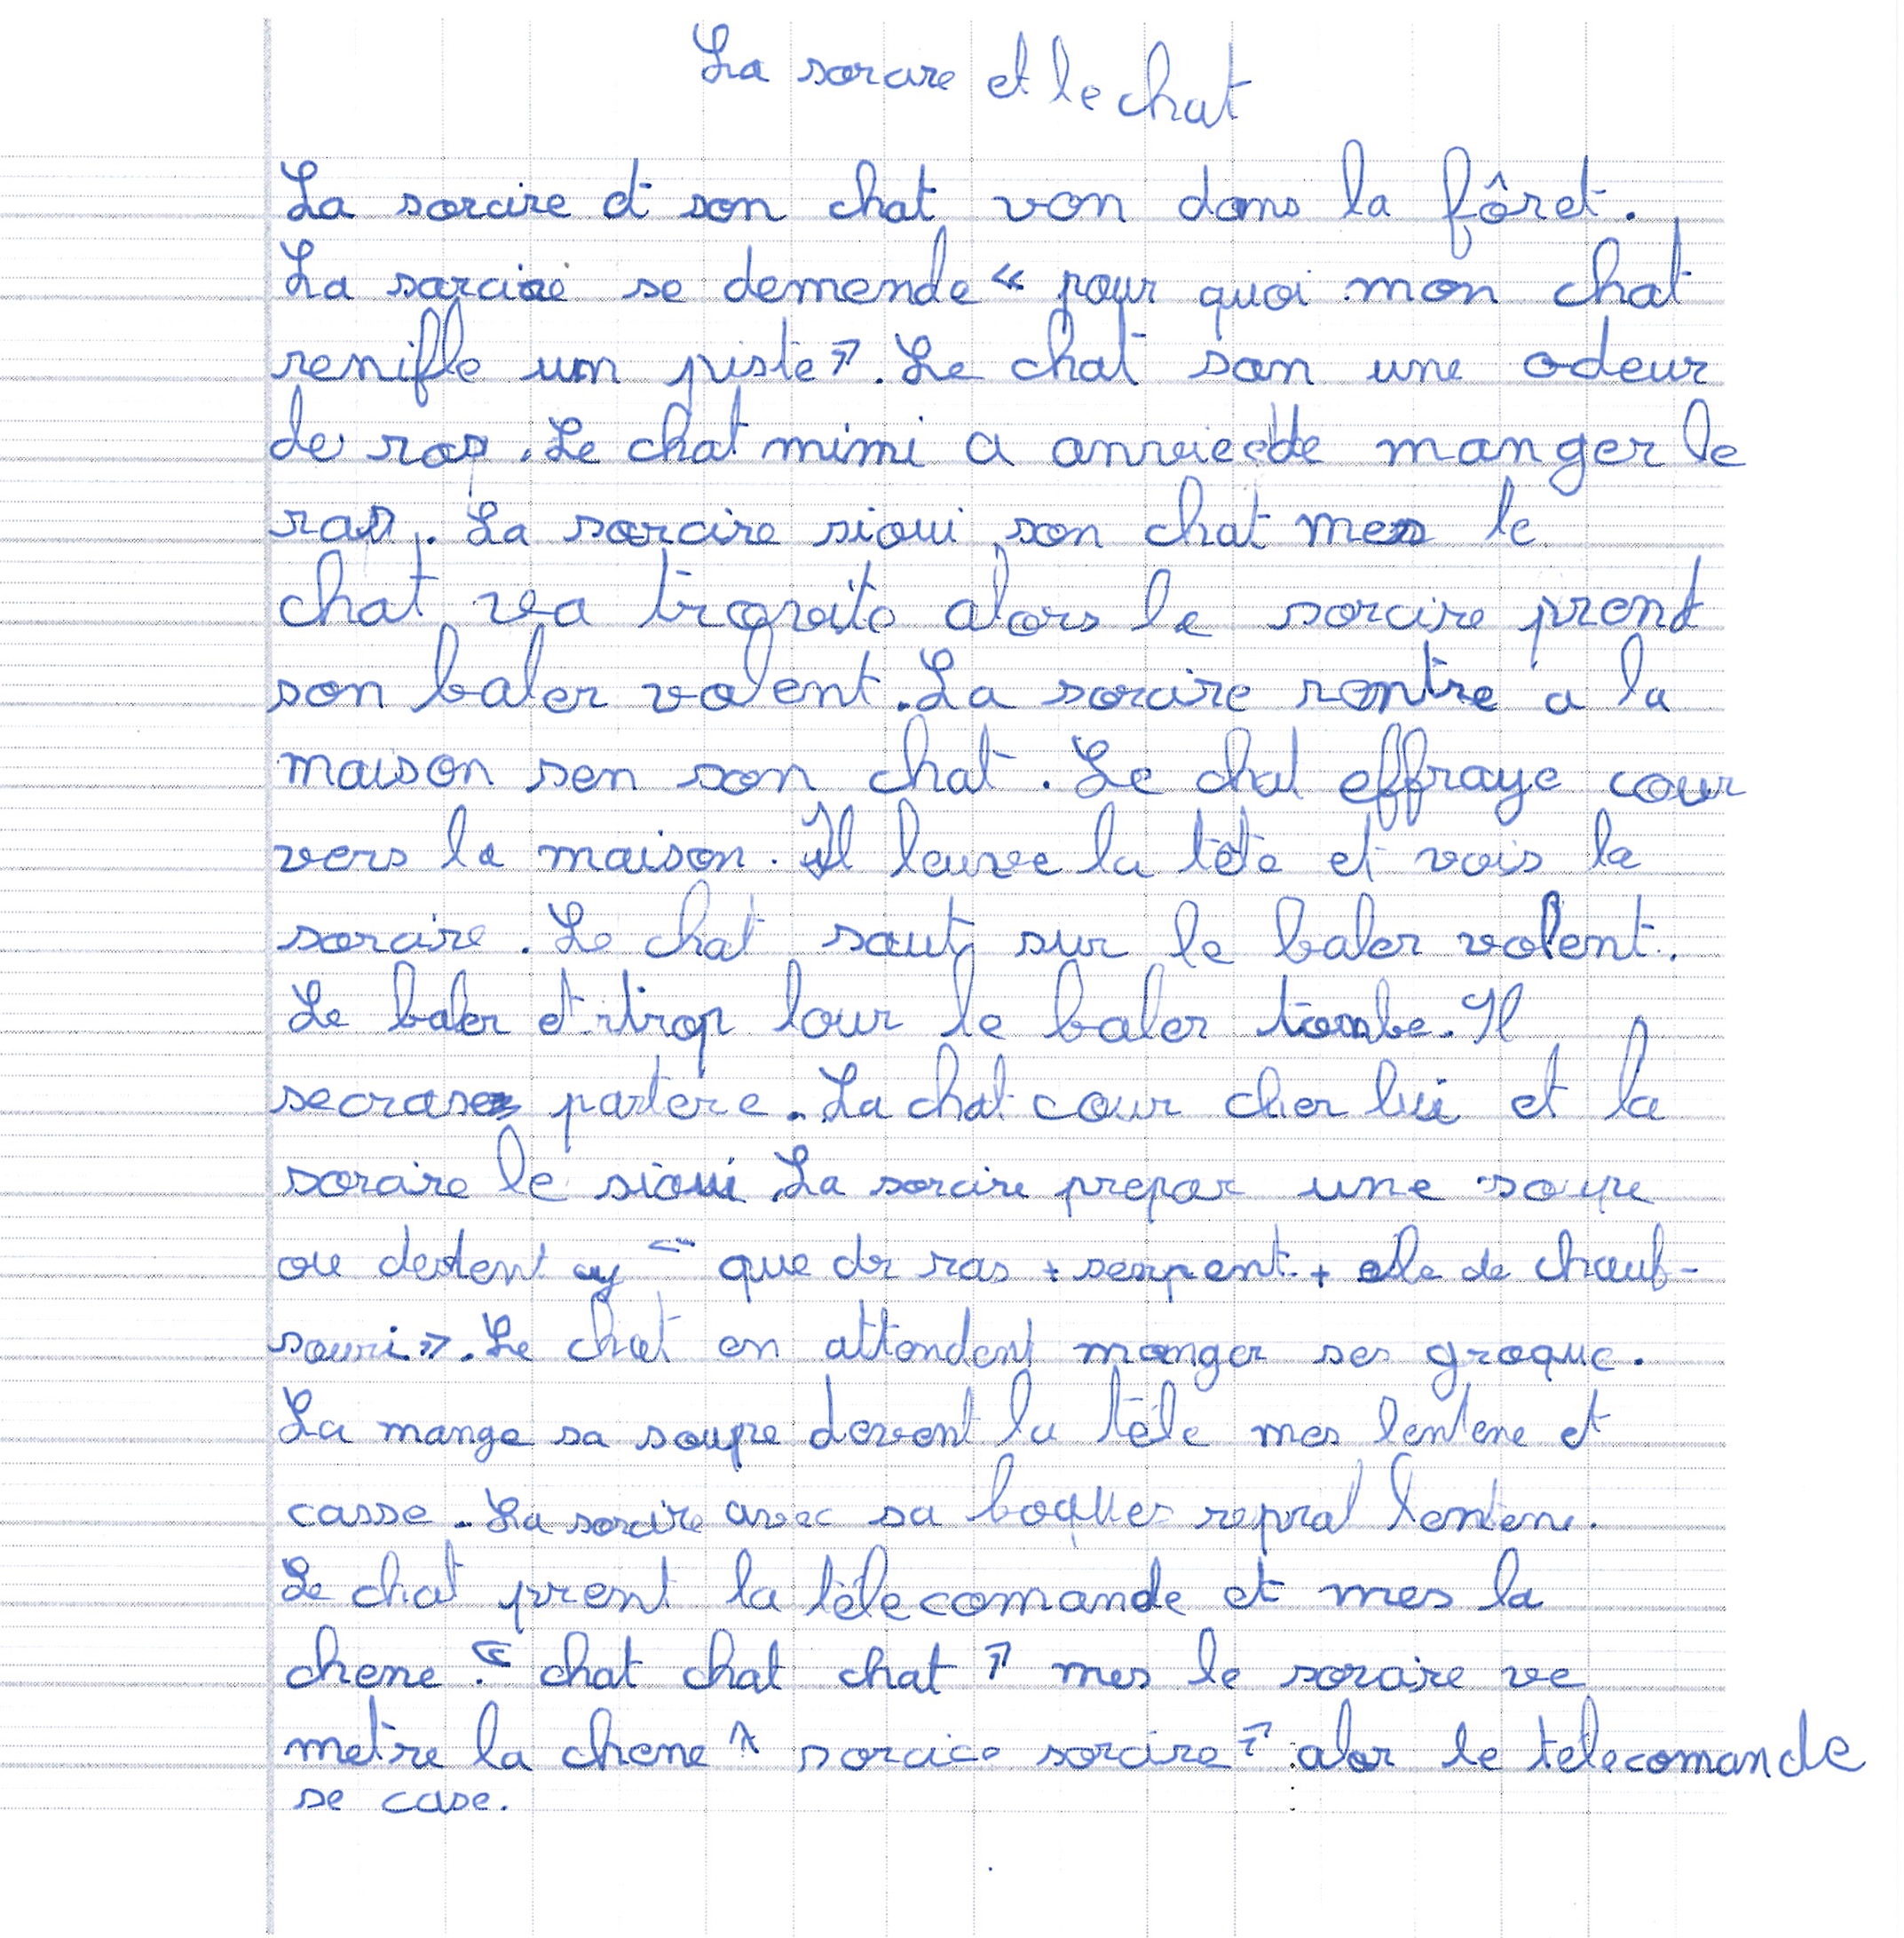 La sorcire et le chat
La sorcire et son chat von dans la fôret.
La sorciae se demende « pour quoi mon chat
renifle un piste ». Le chat san une odeur
de ras. Le chat mimi a anvie de manger le
ras. La sorcire sioui son chat mes le
chat va tropvite alors la sorcire prend
son baler volent. La sorcire rentre a la
maison sen son chat. Le chat effraye cour
vers la maison. Il leuve la tête et vois la
sorcire. Le chat saute sur le baler volent.
Le baler et trop lour le baler tombe. Il
secrase partere. La chat cour cher lui et la
sorcire le sioui. La sorcire prepar une soupe
ou dedent « que de ras + serpent + ele de chauf-
souri ». Le chat en attendent manger ses groque.
La mange sa soupe devent la tele mes lentene et
casse. La sorcire avec sa baques repral lentene.
Le chat prent la télecomande et mes la
chene « chat chat chat » mes le sorcire ve
metre la chene « sorcice sorcire » alor le télecomande
se case.